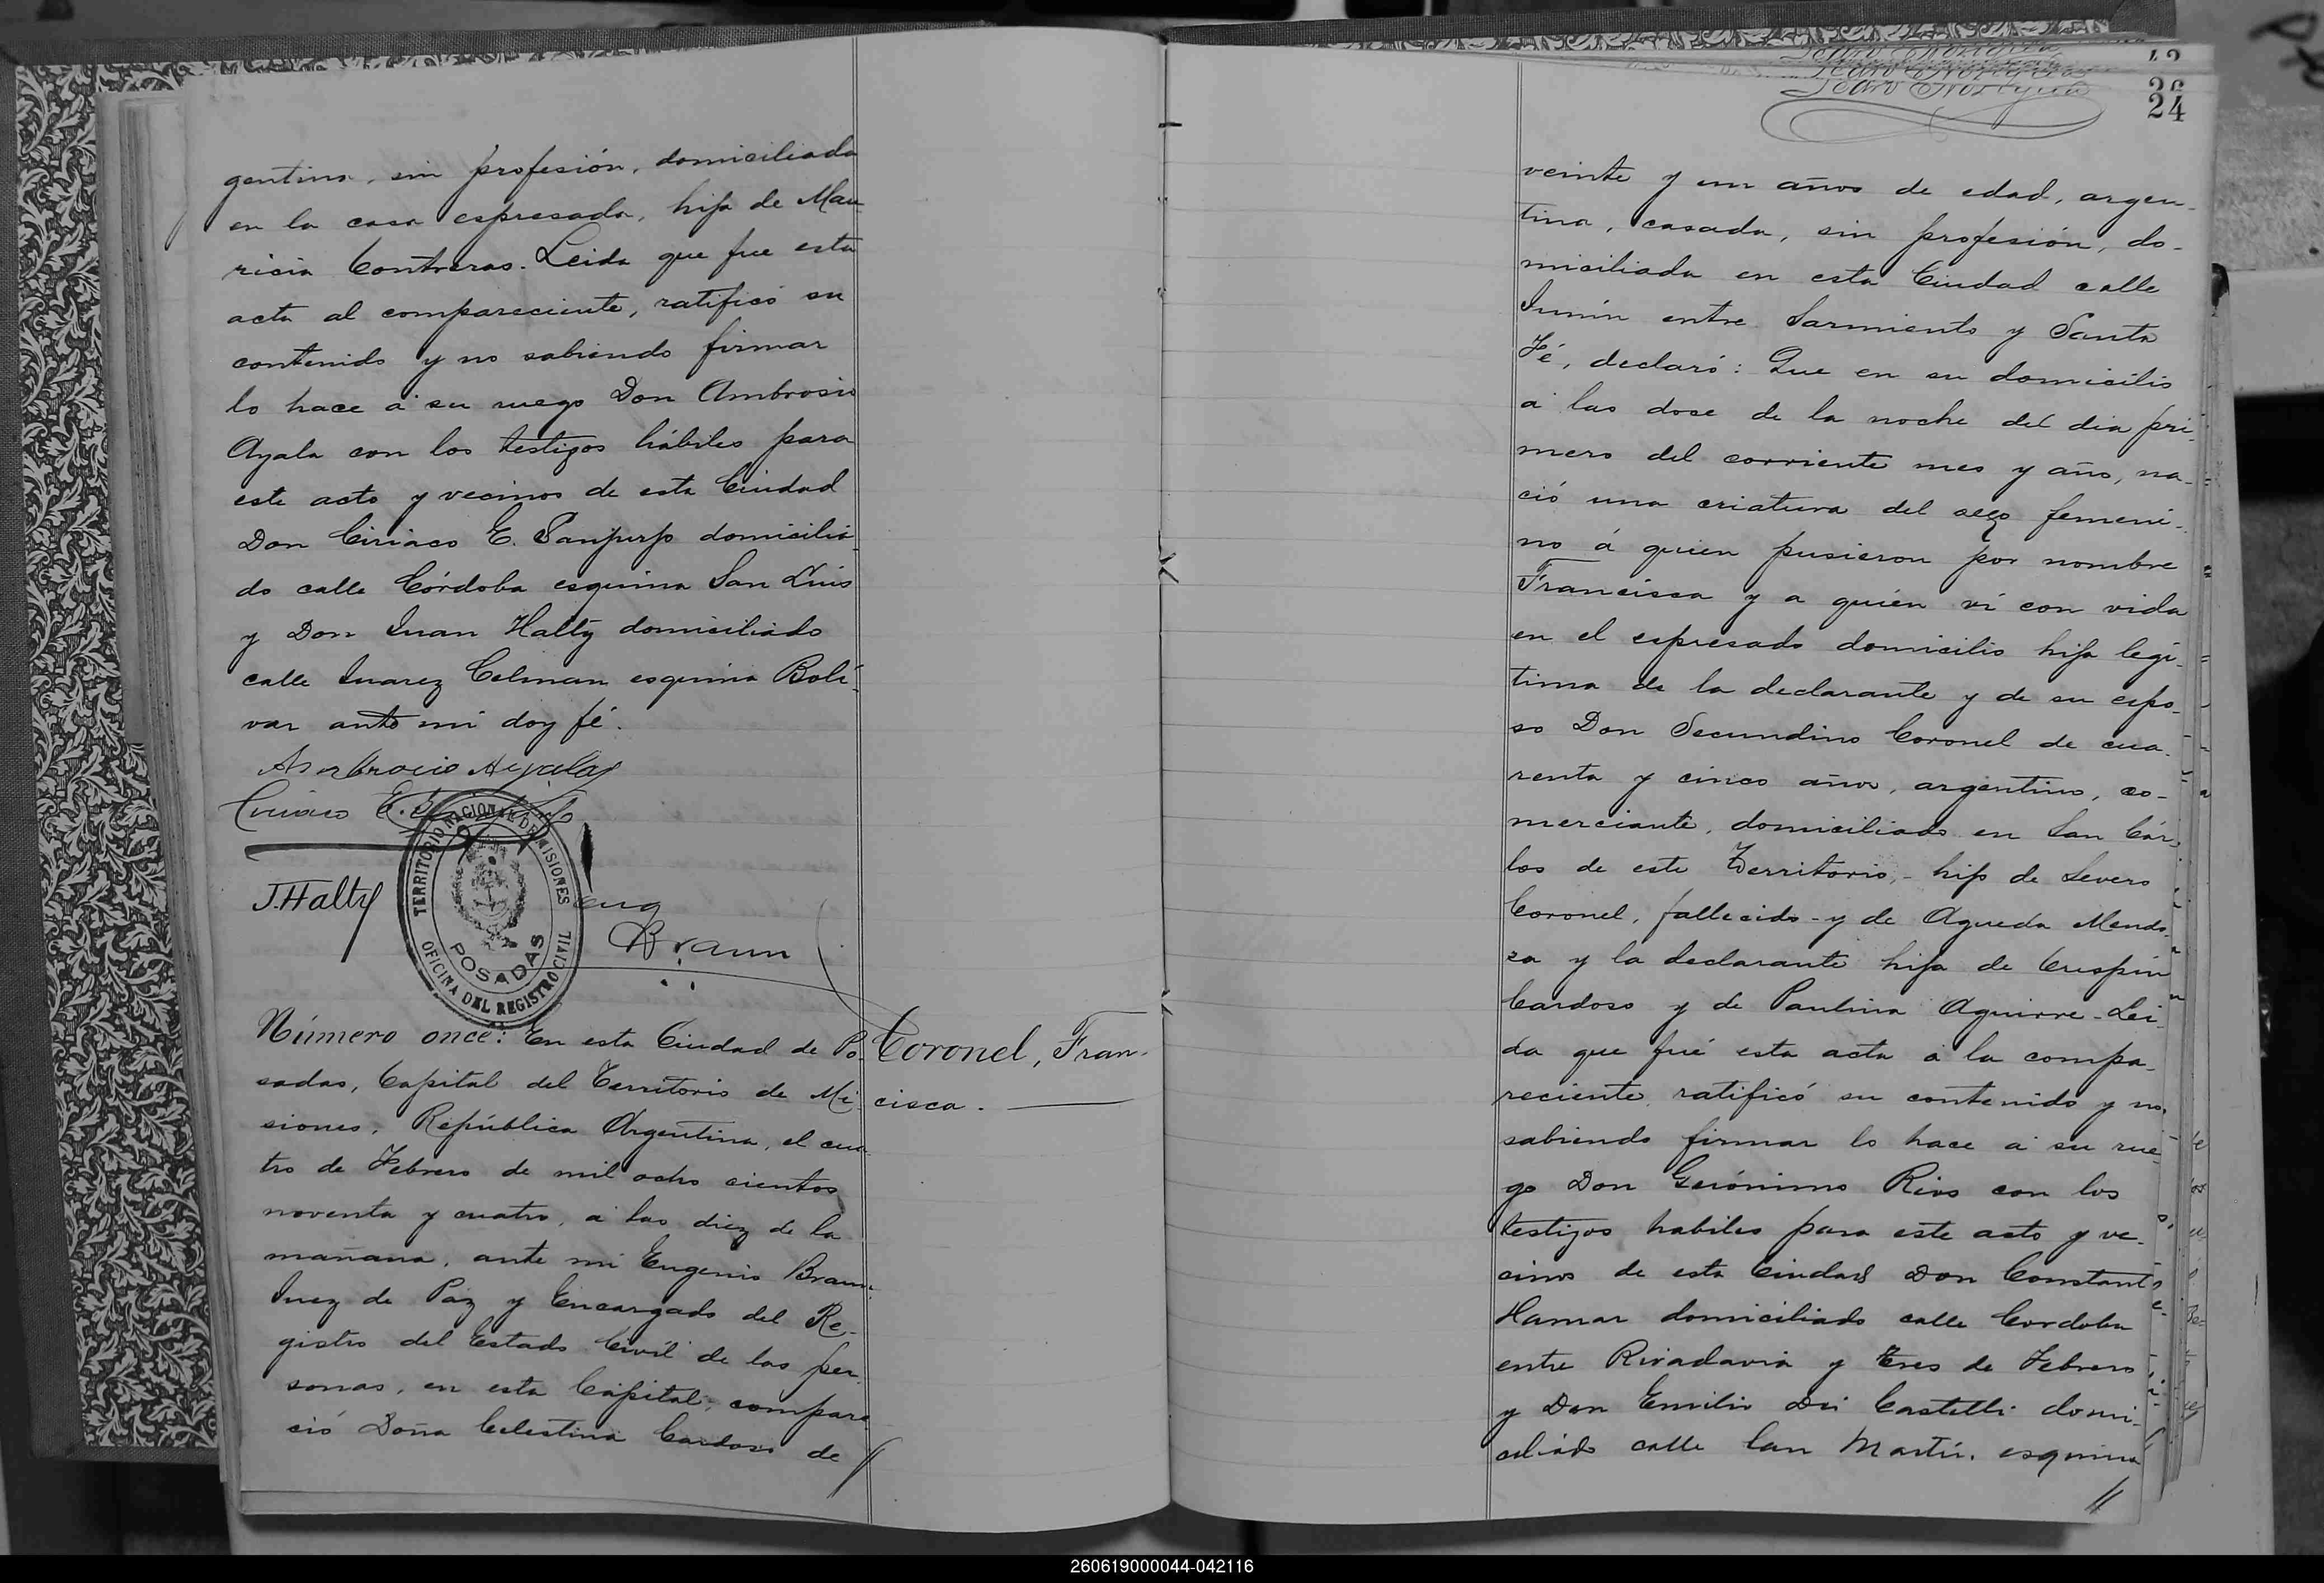 gentina, sin profesión, domiciliada
en la casa espresada, hija de Mau
ricia Contreras. Leida que fue esta
acta al compareciente, ratificó su
contenido y no sabiendo firmar
lo hace á su ruego Don Ambrosio
Ayala con los testigos hábiles para
este acto y vecinos de esta Ciudad
Don Ciriaco E. domicilia
do calle Córdoba esquina San Luis
y Don Juan Halty domiciliado
calle Juarez Celman esquina Bolí-
var ante mi doy fé.
Ambrocio Ayala
Ciriaco E.
J. Halty
Eug Braun
TERRITORIO NACIONAL DE MISIONES
POSADAS
OFICINA DEL REGISTRO CIVIL
Número once: En esta Ciudad de Po-
sadas, Capital del Territorio de Mi-
siones, República Argentina, el cua-
tro de Febrero de mil ocho cientos
noventa y cuatro, a las diez de la
mañana, ante mi Eugenio Braun
Juez de Paz y Encargado del Re-
gistro del Estado Civil de las per
sonas, en esta Capital, compare
ció Doña Celestina Cardoso de
Coronel, Fran-
cisca.
24
veinte y un años de edad, argen-
tina, casada, sin profesión, do-
miciliada en esta Ciudad calle
Junín entre Sarmiento y Santa
Fé, declaró: Que en su domicilio
a las doce de la noche del dia pri-
mero del corriente mes y año, na-
ció una criatura del sexo femeni-
no á quien pusieron por nombre
Francisca y a quién ví con vida
en el espresado domicilio hija legí-
tima de la declarante y de su espo-
so Don Secundino Coronel de cua-
renta y cinco años, argentino, co-
merciante, domiciliado en San Cár-
los de este Territorio, - hijo de Severo
Coronel, fallecido - y de Agueda Mendo-
za y la declarante hija de Crispín
Cardoso y de Paulina Aguirre - Lei-
da que fué esta acta a la compa-
reciente ratificó su contenido y no
sabiendo firmar lo hace a su rue-
go Don Gerónimo Rios con los
testigos habiles para este acto y ve-
cinos de esta Ciudad Don Constant
Hamar domiciliado calle Cordoba
entre Rivadavia y Tres de Febrero
y Don Emilio Dei Castelli domi-
ciliado calle San Martín esquina
260619000044-042116